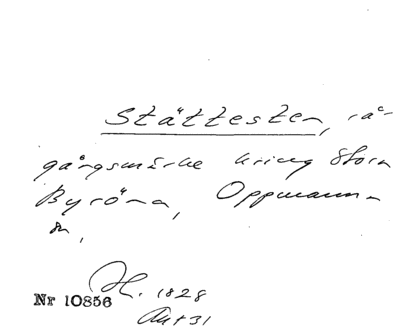 Stättesten, rå-
gångsmärke kring Stora
Byröna, Oppmanna
sn,
H. 1828
Nr 10856
Akt 31